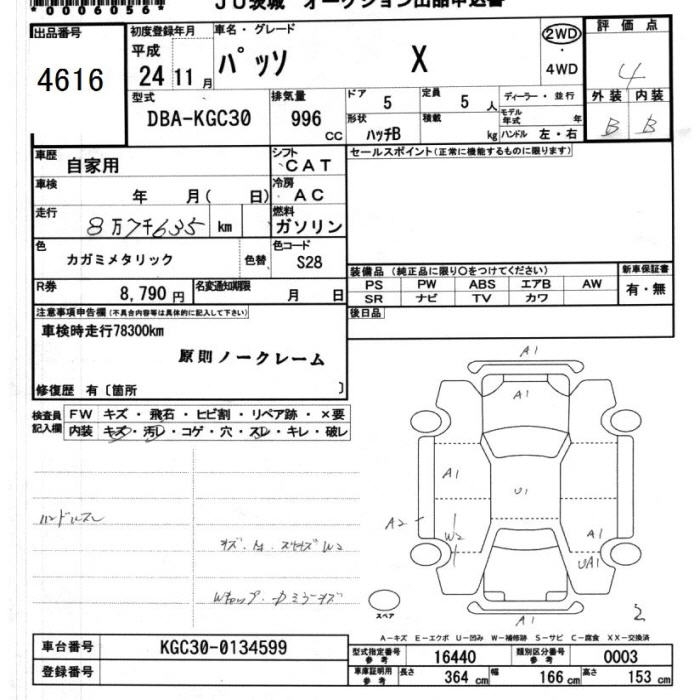 *0006056*
JU茨城 オークション出品申込書
出品番号
4616
初度登録年月
平成
24 11 月
車名・グレード
パッソ X
2WD
・
4WD
評価点
4
外装 内装
B B
型式
DBA-KGC30
排気量
996 CC
ドア 5
定員 5 人
形状 ハッチB
積載 kg
ディーラー・並行
モデル年式 年
ハンドル 左・右
車歴 自家用
シフト CAT
車検 年 月( 日)
冷房 AC
走行 8万7千635 km
燃料 ガソリン
色 カガミメタリック 色替
色コード S28
R券 8,790 円
名変通知期限 月 日
セールスポイント(正常に機能するものに限ります)
装備品 (純正品に限り〇をつけてください)
PS PW ABS エアB AW
SR ナビ TV カワ
新車保証書
有・無
後日品
注意事項申告欄(不具合内容等は具体的に記入して下さい)
車検時走行78300km
原則ノークレーム
修復歴 有〔箇所 〕
検査員記入欄
FW キズ・飛石・ヒビ割・リペア跡・×要
内装 キズ・汚レ・コゲ・穴・スレ・キレ・破レ
ハンドルスレ
A1
A1
A1
U1
A2
W2
A1
UA1
A1
スペア
2
A-キズ E-エクボ U-凹み W-補修跡 S-サビ C-腐食 XX-交換済
車台番号 KGC30-0134599
登録番号
型式指定番号 参考 16440
類別区分番号 参考 0003
車庫証明用 参考 長さ 364 cm 幅 166 cm 高さ 153 cm